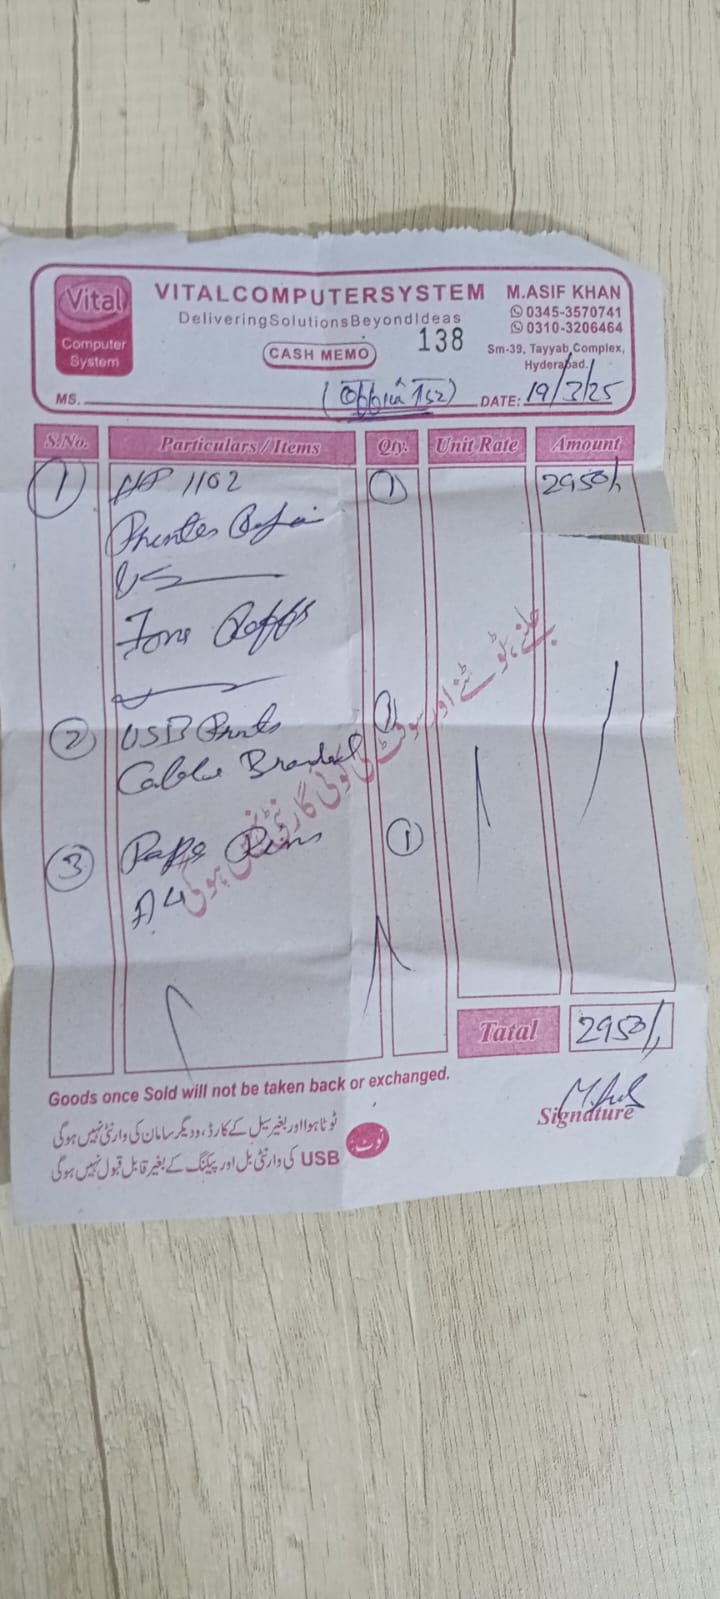 Vital
Computer
System
VITALCOMPUTERSYSTEM
DeliveringSolutionsBeyondIdeas
CASH MEMO
138
M.ASIF KHAN
0345-3570741
0310-3206464
Sm-39, Tayyab Complex,
Hyderabad.
MS.
DATE: 19/3/25
S.No. Particulars / Items Qty. Unit Rate Amount
1 HP 1102 1 2950/,
2 USB
Cable Branded 1
3 1
A4
جلنے، ٹوٹنے اور سوفٹ کی کوئی گارنٹی نہیں ہوگی
Tatal 2950/,
Goods once Sold will not be taken back or exchanged.
Signature
نوٹ:
ٹوٹا ہوا اور بغیر سیل کے کارڈ، ودیگر سامان کی وارنٹی نہیں ہوگی
USB کی وارنٹی بل اور پیکنگ کے بغیر قابل قبول نہیں ہوگی